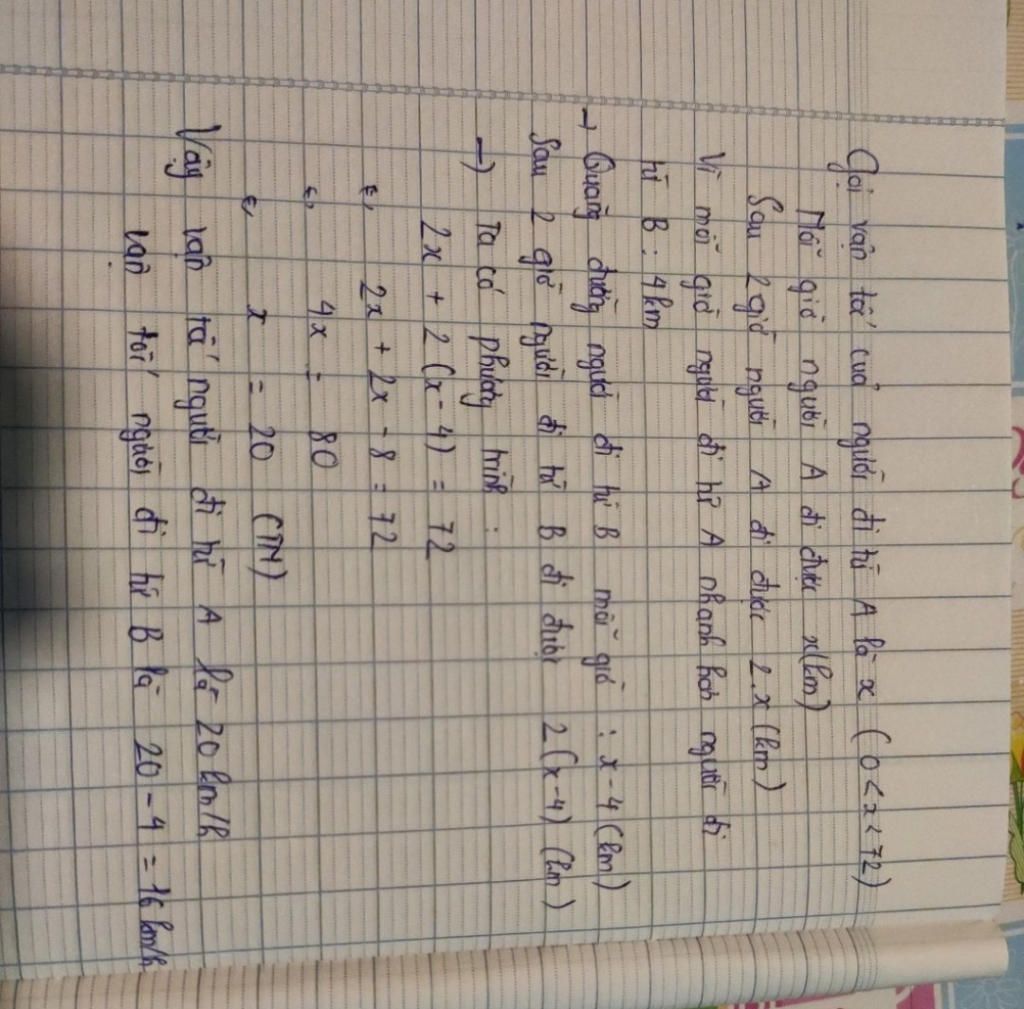 Gọi vận tốc của người đi từ A là x (0 < x < 72)
Mỗi giờ người A đi được x(km)
Sau 2 giờ người A đi được 2.x (km)
Vì mỗi giờ người đi từ A nhanh hơn người đi
từ B : 4km
→ Quãng đường người đi từ B mỗi giờ : x - 4 (km)
Sau 2 giờ người đi từ B đi được 2(x-4) (km)
→ Ta có phương trình :
2x + 2 (x - 4) = 72
⇔ 2x + 2x - 8 = 72
⇔ 4x = 80
⇔ x = 20 (TM)
Vậy vận tốc người đi từ A là 20 km/h
vận tốc người đi từ B là 20 - 4 = 16 km/h